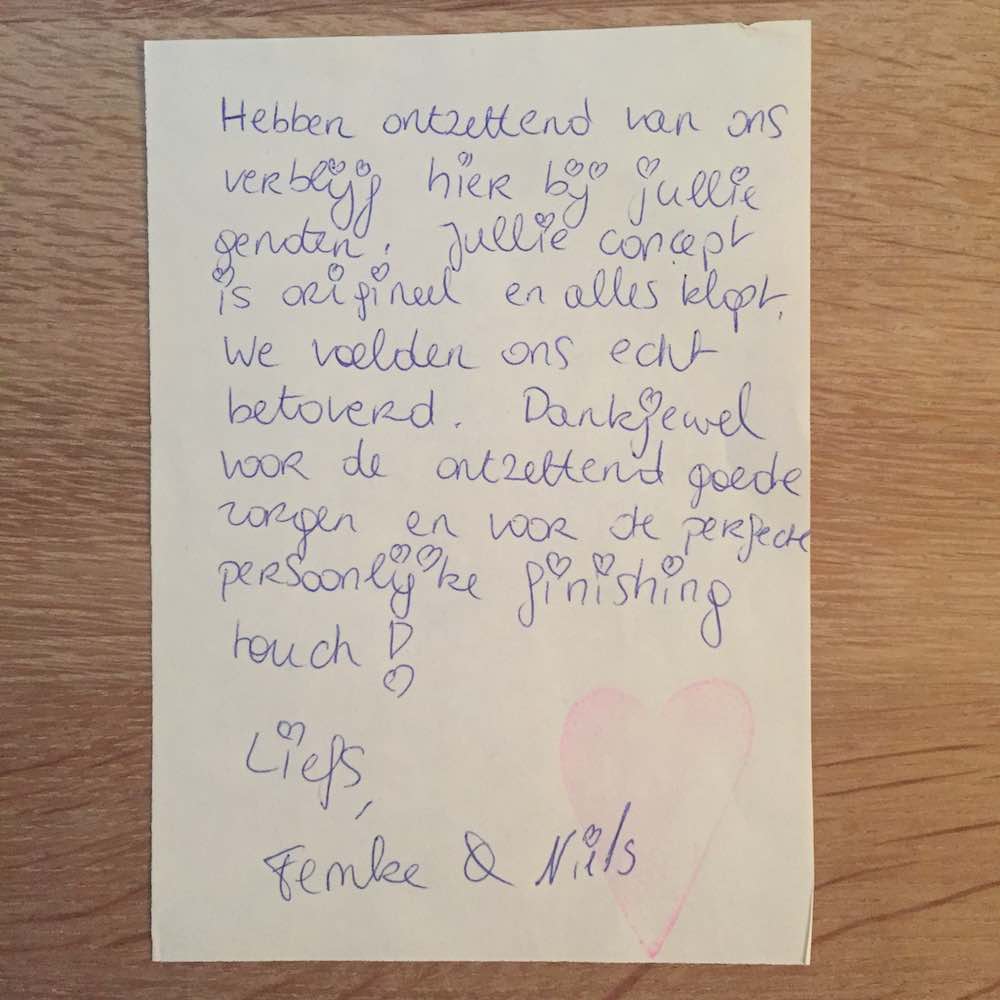 Hebben ontzettend van ons
verblijf hier bij jullie
genoten. Jullie concept
is origineel en alles klopt.
We voelden ons echt
betoverd. Dankjewel
voor de ontzettend goede
zorgen en voor de perfecte
persoonlijke finishing
touch!
Liefs,
Femke & Niels